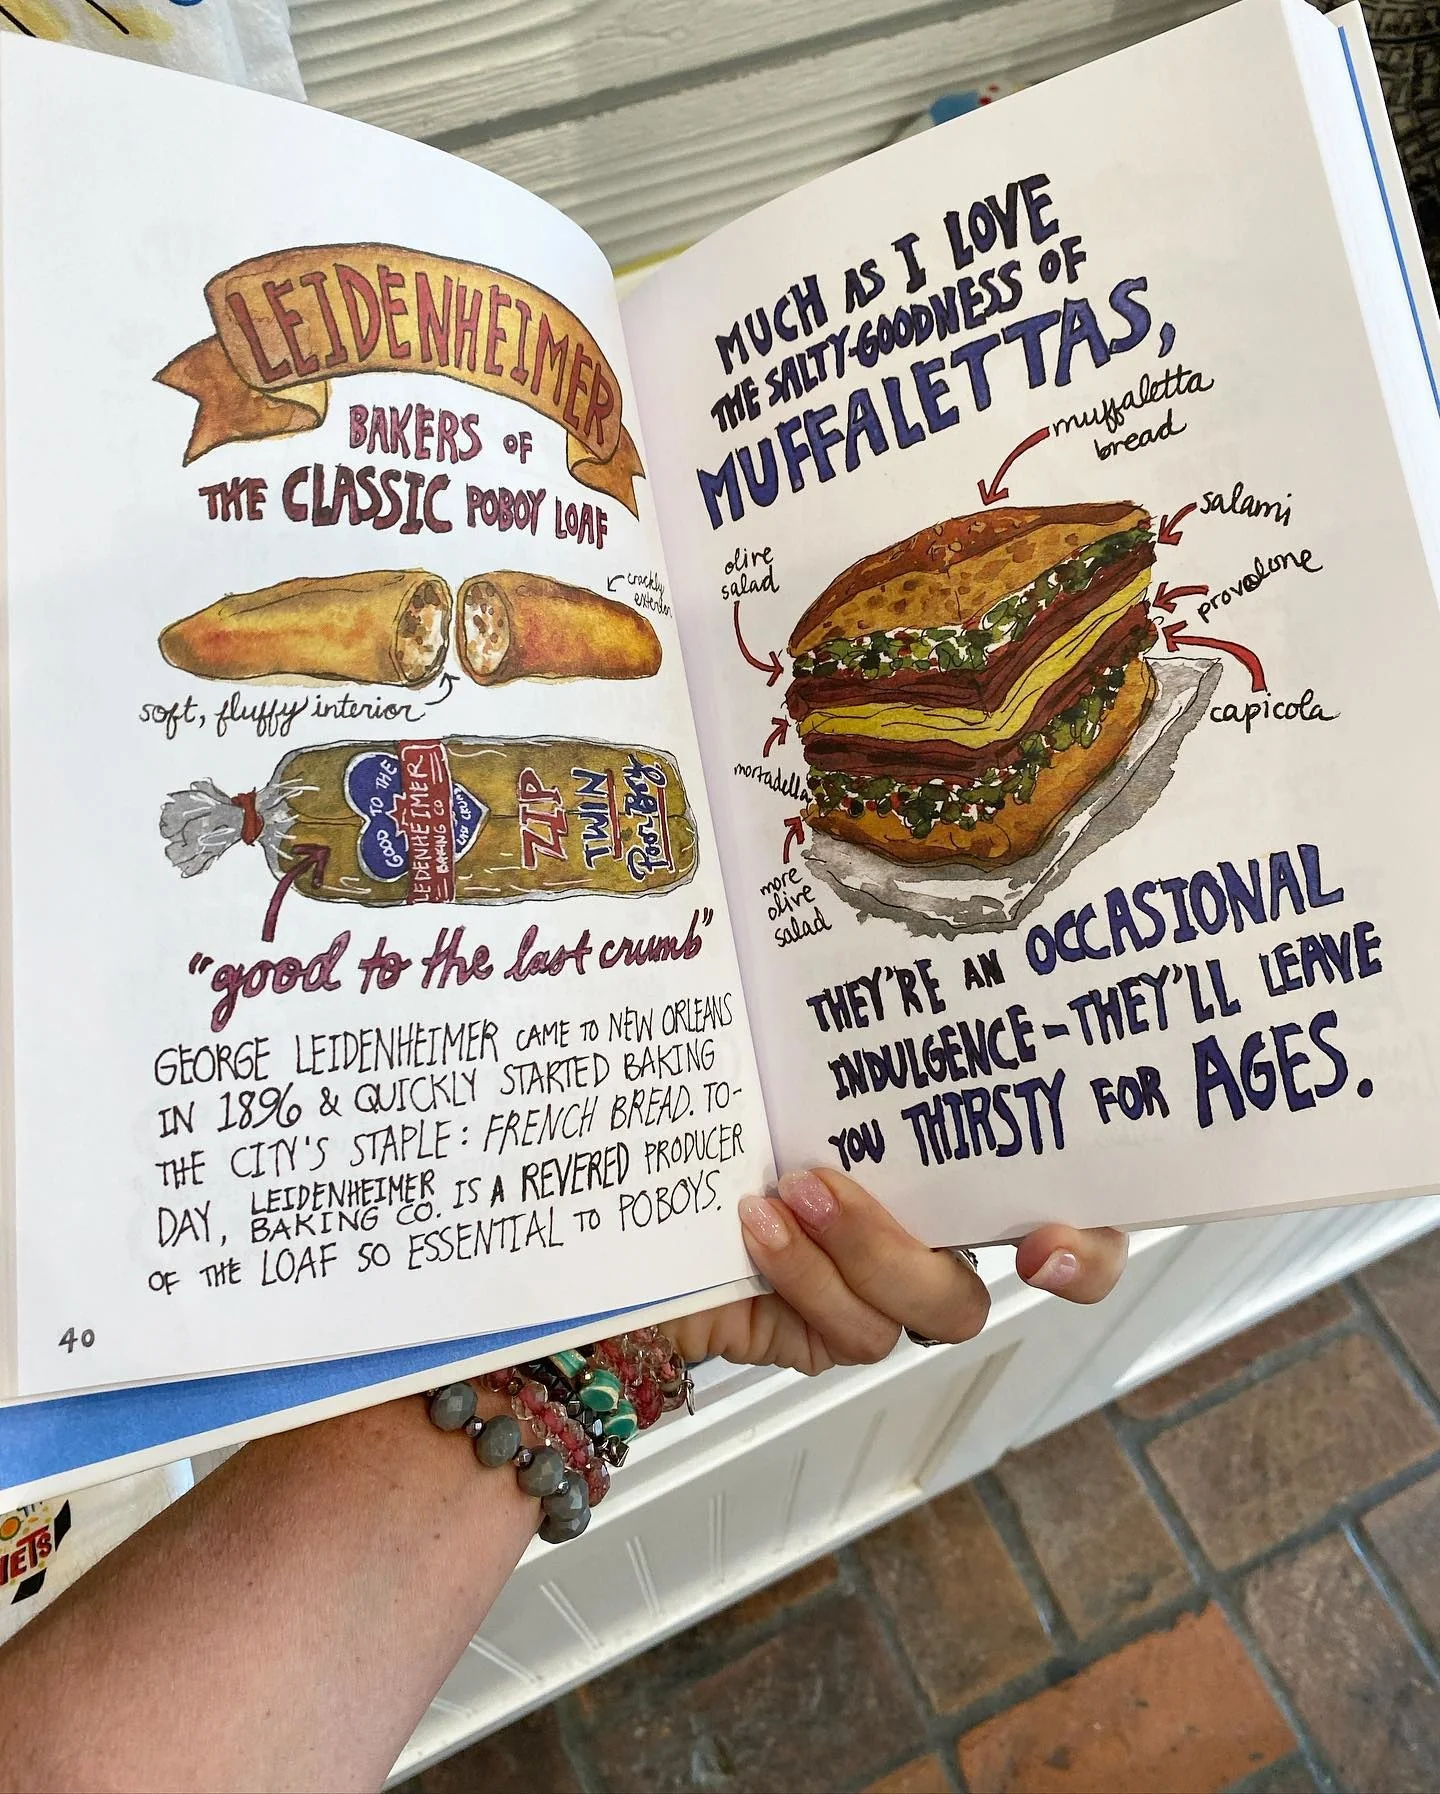 LEIDENHEIMER
BAKERS OF
THE CLASSIC POBOY LOAF
crackly
exterior
soft, fluffy interior
GOOD TO THE
LEIDENHEIMER
BAKING CO
LAST CRUMB
ZIP
TWIN
Poor Boy
"good to the last crumb"
GEORGE LEIDENHEIMER CAME TO NEW ORLEANS
IN 1896 & QUICKLY STARTED BAKING
THE CITY'S STAPLE: FRENCH BREAD. TO-
DAY, LEIDENHEIMER BAKING CO. IS A REVERED PRODUCER
OF THE LOAF SO ESSENTIAL TO POBOYS.
40
MUCH AS I LOVE
THE SALTY-GOODNESS OF
MUFFALETTAS,
muffaletta
bread
olive
salad
salami
provolone
capicola
mortadella
more
olive
salad
THEY'RE AN OCCASIONAL
INDULGENCE - THEY'LL LEAVE
YOU THIRSTY FOR AGES.